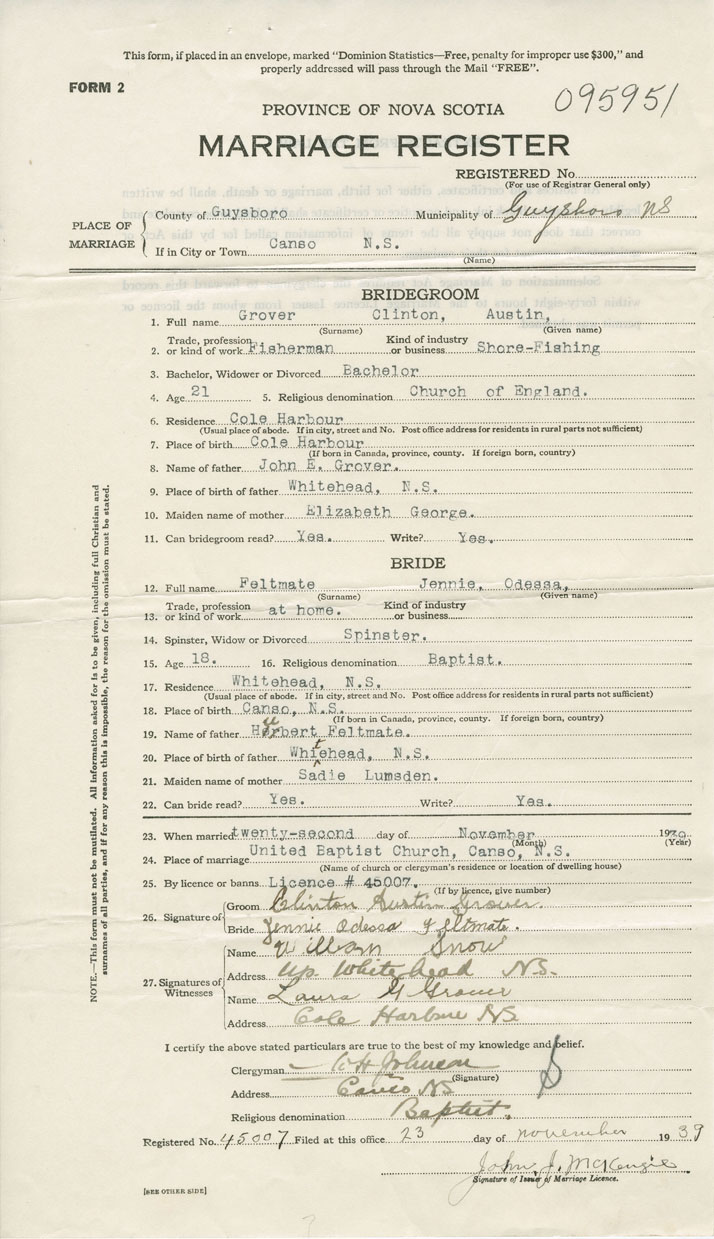 This form, if placed in an envelope, marked "Dominion Statistics—Free, penalty for improper use $300," and
properly addressed will pass through the Mail "FREE".
FORM 2
095951
PROVINCE OF NOVA SCOTIA
MARRIAGE REGISTER
REGISTERED No.
(For use of Registrar General only)
PLACE OF MARRIAGE
County of Guysboro Municipality of Guysboro NS
If in City or Town Canso N.S.
(Name)
BRIDEGROOM
1. Full name Grover Clinton, Austin,
(Surname) (Given name)
2. Trade, profession or kind of work Fisherman Kind of industry or business Shore-Fishing
3. Bachelor, Widower or Divorced Bachelor
4. Age 21 5. Religious denomination Church of England.
6. Residence Cole Harbour
(Usual place of abode. If in city, street and No. Post office address for residents in rural parts not sufficient)
7. Place of birth Cole Harbour
(If born in Canada, province, county. If foreign born, country)
8. Name of father John E. Grover.
9. Place of birth of father Whitehead, N.S.
10. Maiden name of mother Elizabeth George.
11. Can bridegroom read? Yes. Write? Yes.
BRIDE
12. Full name Feltmate Jennie, Odessa,
(Surname) (Given name)
13. Trade, profession or kind of work at home. Kind of industry or business
14. Spinster, Widow or Divorced Spinster.
15. Age 18. 16. Religious denomination Baptist.
17. Residence Whitehead, N.S.
(Usual place of abode. If in city, street and No. Post office address for residents in rural parts not sufficient)
18. Place of birth Canso, N.S.
(If born in Canada, province, county. If foreign born, country)
19. Name of father Hubert Feltmate.
20. Place of birth of father Whitehead, N.S.
21. Maiden name of mother Sadie Lumsden.
22. Can bride read? Yes. Write? Yes.
23. When married twenty-second day of November 19
(Month) (Year)
24. Place of marriage United Baptist Church, Canso, N.S.
(Name of church or clergyman's residence or location of dwelling house)
25. By licence or banns Licence # 45007.
(If by licence, give number)
26. Signature of
Groom Clinton Austin Grover.
Bride Jennie Odessa Feltmate.
27. Signatures of Witnesses
Name William Snow
Address Up. Whitehead NS.
Name Laura G Grover
Address Cole Harbour NS
I certify the above stated particulars are true to the best of my knowledge and belief.
Clergyman Johnson
(Signature)
Address Canso NS
Religious denomination Baptist.
Registered No. 45007 Filed at this office 23 day of november 1939
John J. McKenzie
Signature of Issuer of Marriage Licence.
[SEE OTHER SIDE]
NOTE.—This form must not be mutilated. All information asked for is to be given, including full Christian and
surnames of all parties, and if for any reason this is impossible, the reason for the omission must be stated.